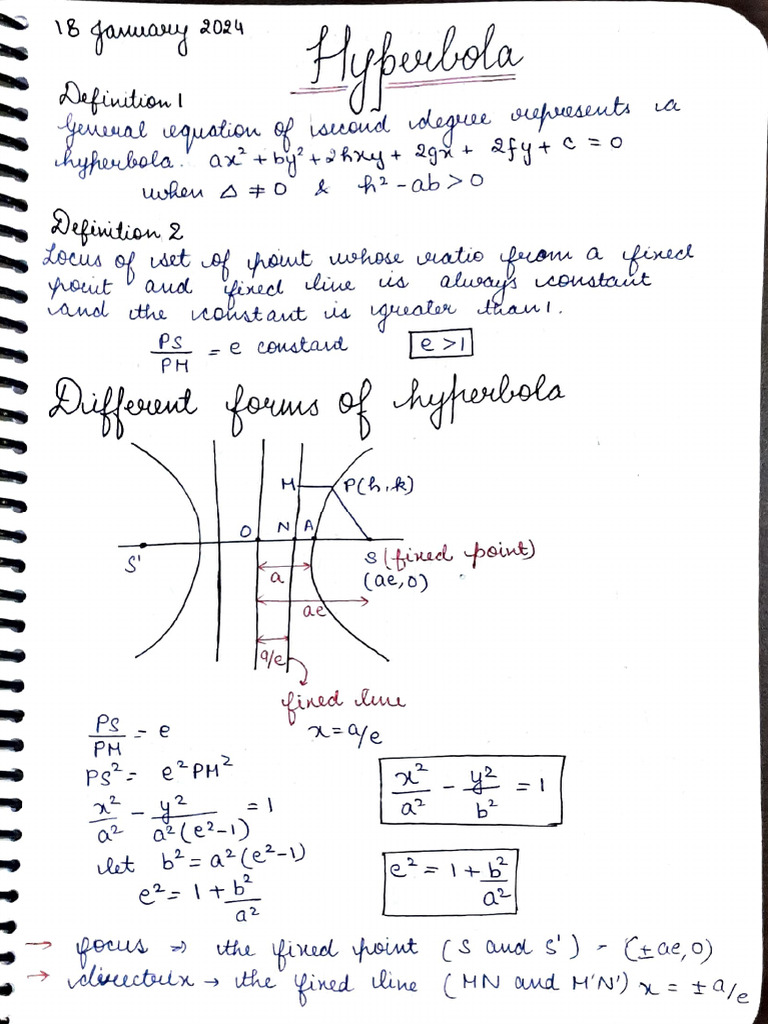 18 January 2024
Hyperbola
Definition 1
General equation of second degree represents a
hyperbola. ax² + by² + 2hxy + 2gx + 2fy + c = 0
when Δ ≠ 0 & h² - ab > 0
Definition 2
Locus of set of point whose ratio from a fixed
point and fixed line is always constant
and the constant is greater than 1.
PS/PM = e constant e > 1
Different forms of hyperbola
M P(h,k)
O N A
S' S (fixed point)
a (ae,0)
ae
a/e
fixed line
x = a/e
PS/PM = e
PS² = e²PM²
x²/a² - y²/a²(e²-1) = 1
x²/a² - y²/b² = 1
let b² = a²(e²-1)
e² = 1 + b²/a²
e² = 1 + b²/a²
→ focus ⇒ the fixed point (S and S') - (±ae,0)
→ directrix → the fixed line (MN and M'N') x = ± a/e